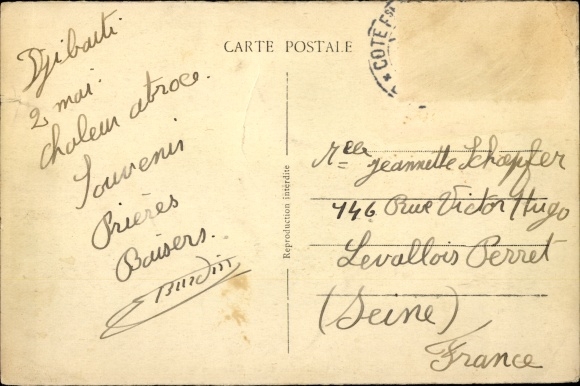 CARTE POSTALE
Djibouti
2 mai.
Chaleur atroce.
Souvenir
Prières
Baisers.
Reproduction interdite
COTE F
Melle Jeannette Schœpfer
146 Rue Victor Hugo
Levallois Perret
(Seine)
France